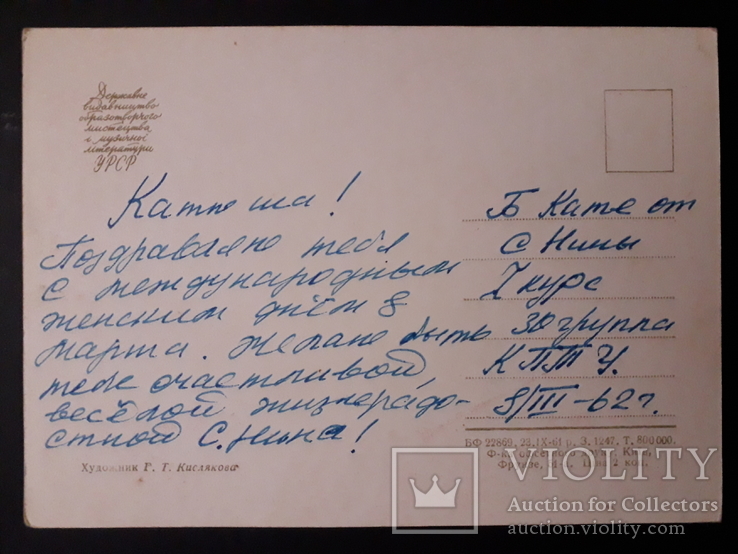 Державне
видавництво
образотворчого
мистецтва
і музичної
літератури
УРСР
Катюша!
Поздравляю тебя
с международным
женским днём 8
марта. Желаю быть
тебе счастливой
весёлой жизнерадо-
стной С. Нина!
Б Кате от
С Нины
I курс
30 группа
КПТУ.
8/III-62 г.
Художник Г. Т. Кислякова
БФ 22869, 23.IX-61 р. З. 1247. Т. 800 000.
Ф-ка Київ,
Фрунзе, Ціна 2 коп.
VIOLITY
Auction for Collectors
auction.violity.com